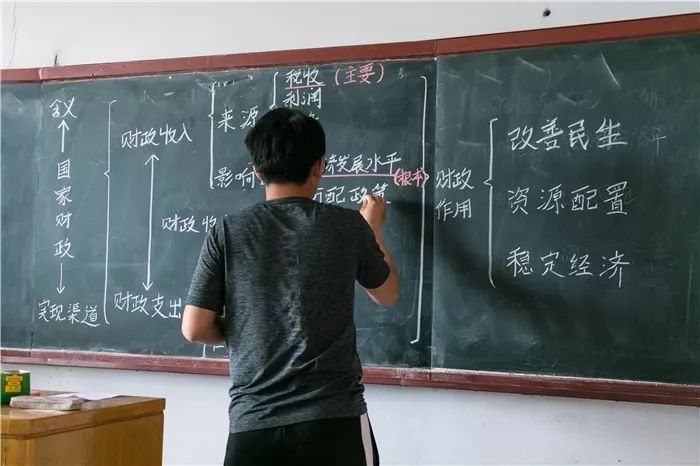 含义
国家财政
实现渠道
财政收入
财政收
财政支出
来源
税收（主要）
利润
影响
发展水平
（根本）
配政策
财政
作用
改善民生
资源配置
稳定经济